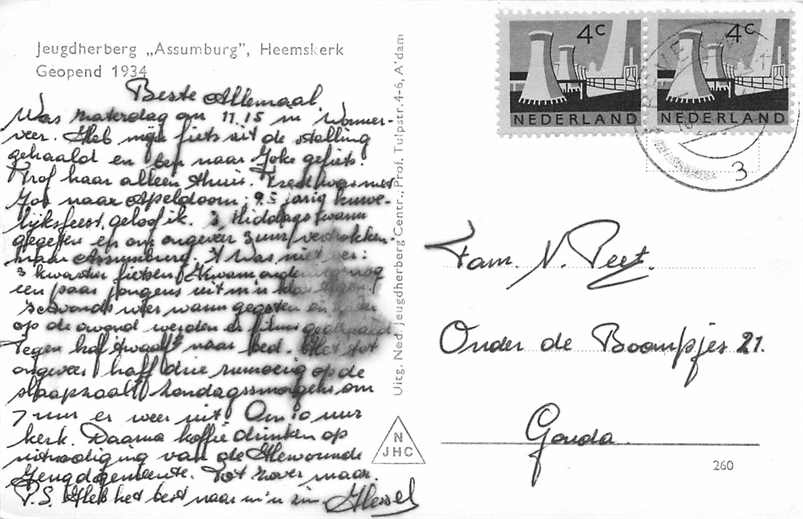 Jeugdherberg „Assumburg", Heemskerk
Geopend 1934
Beste Allemaal,
Was zaterdag om 11.15 in Wormer-
veer. Heb mijn fiets uit de stalling
gehaald en ben naar Joke gefietst.
Trof haar alleen thuis. was met
Jos naar Apeldoorn; jarig huwe-
lijksfeest, geloof ik. 's Middags warm
gegeten en om ongeveer 3 uur vertrokken
naar Assumburg. 't Was niet ver:
3 kwartier fietsen. kwam onderweg nog
een paar jongens uit m'n klas tegen.
's avonds weer warm gegeten en
op de avond werden er films gedraaid.
Tegen half twaalf naar bed. Het tot
ongeveer half drie rumoerig op de
slaapzaal! Zondagsmorgens om
7 uur er weer uit. Om 10 uur
kerk. Daarna koffie drinken op
uitnodiging van de Hervormde
Jeugdgemeente. Tot zover maar.
P.S. Heb het best naar m'n zin
Uitg. Ned. Jeugdherberg Centr., Prof. Tulpstr. 4-6, A'dam
N
JHC
4c
NEDERLAND
4c
NEDERLAND
3
Fam. N. Peet.
Onder de Boompjes 21.
Gouda.
260